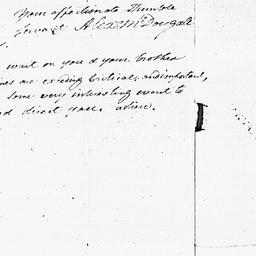 Your affectionate Humble
Servant Alexr. McDougall
wait on you & your brother
are exceeding Critical, and important,
some very interesting event to
direct you. adieu.